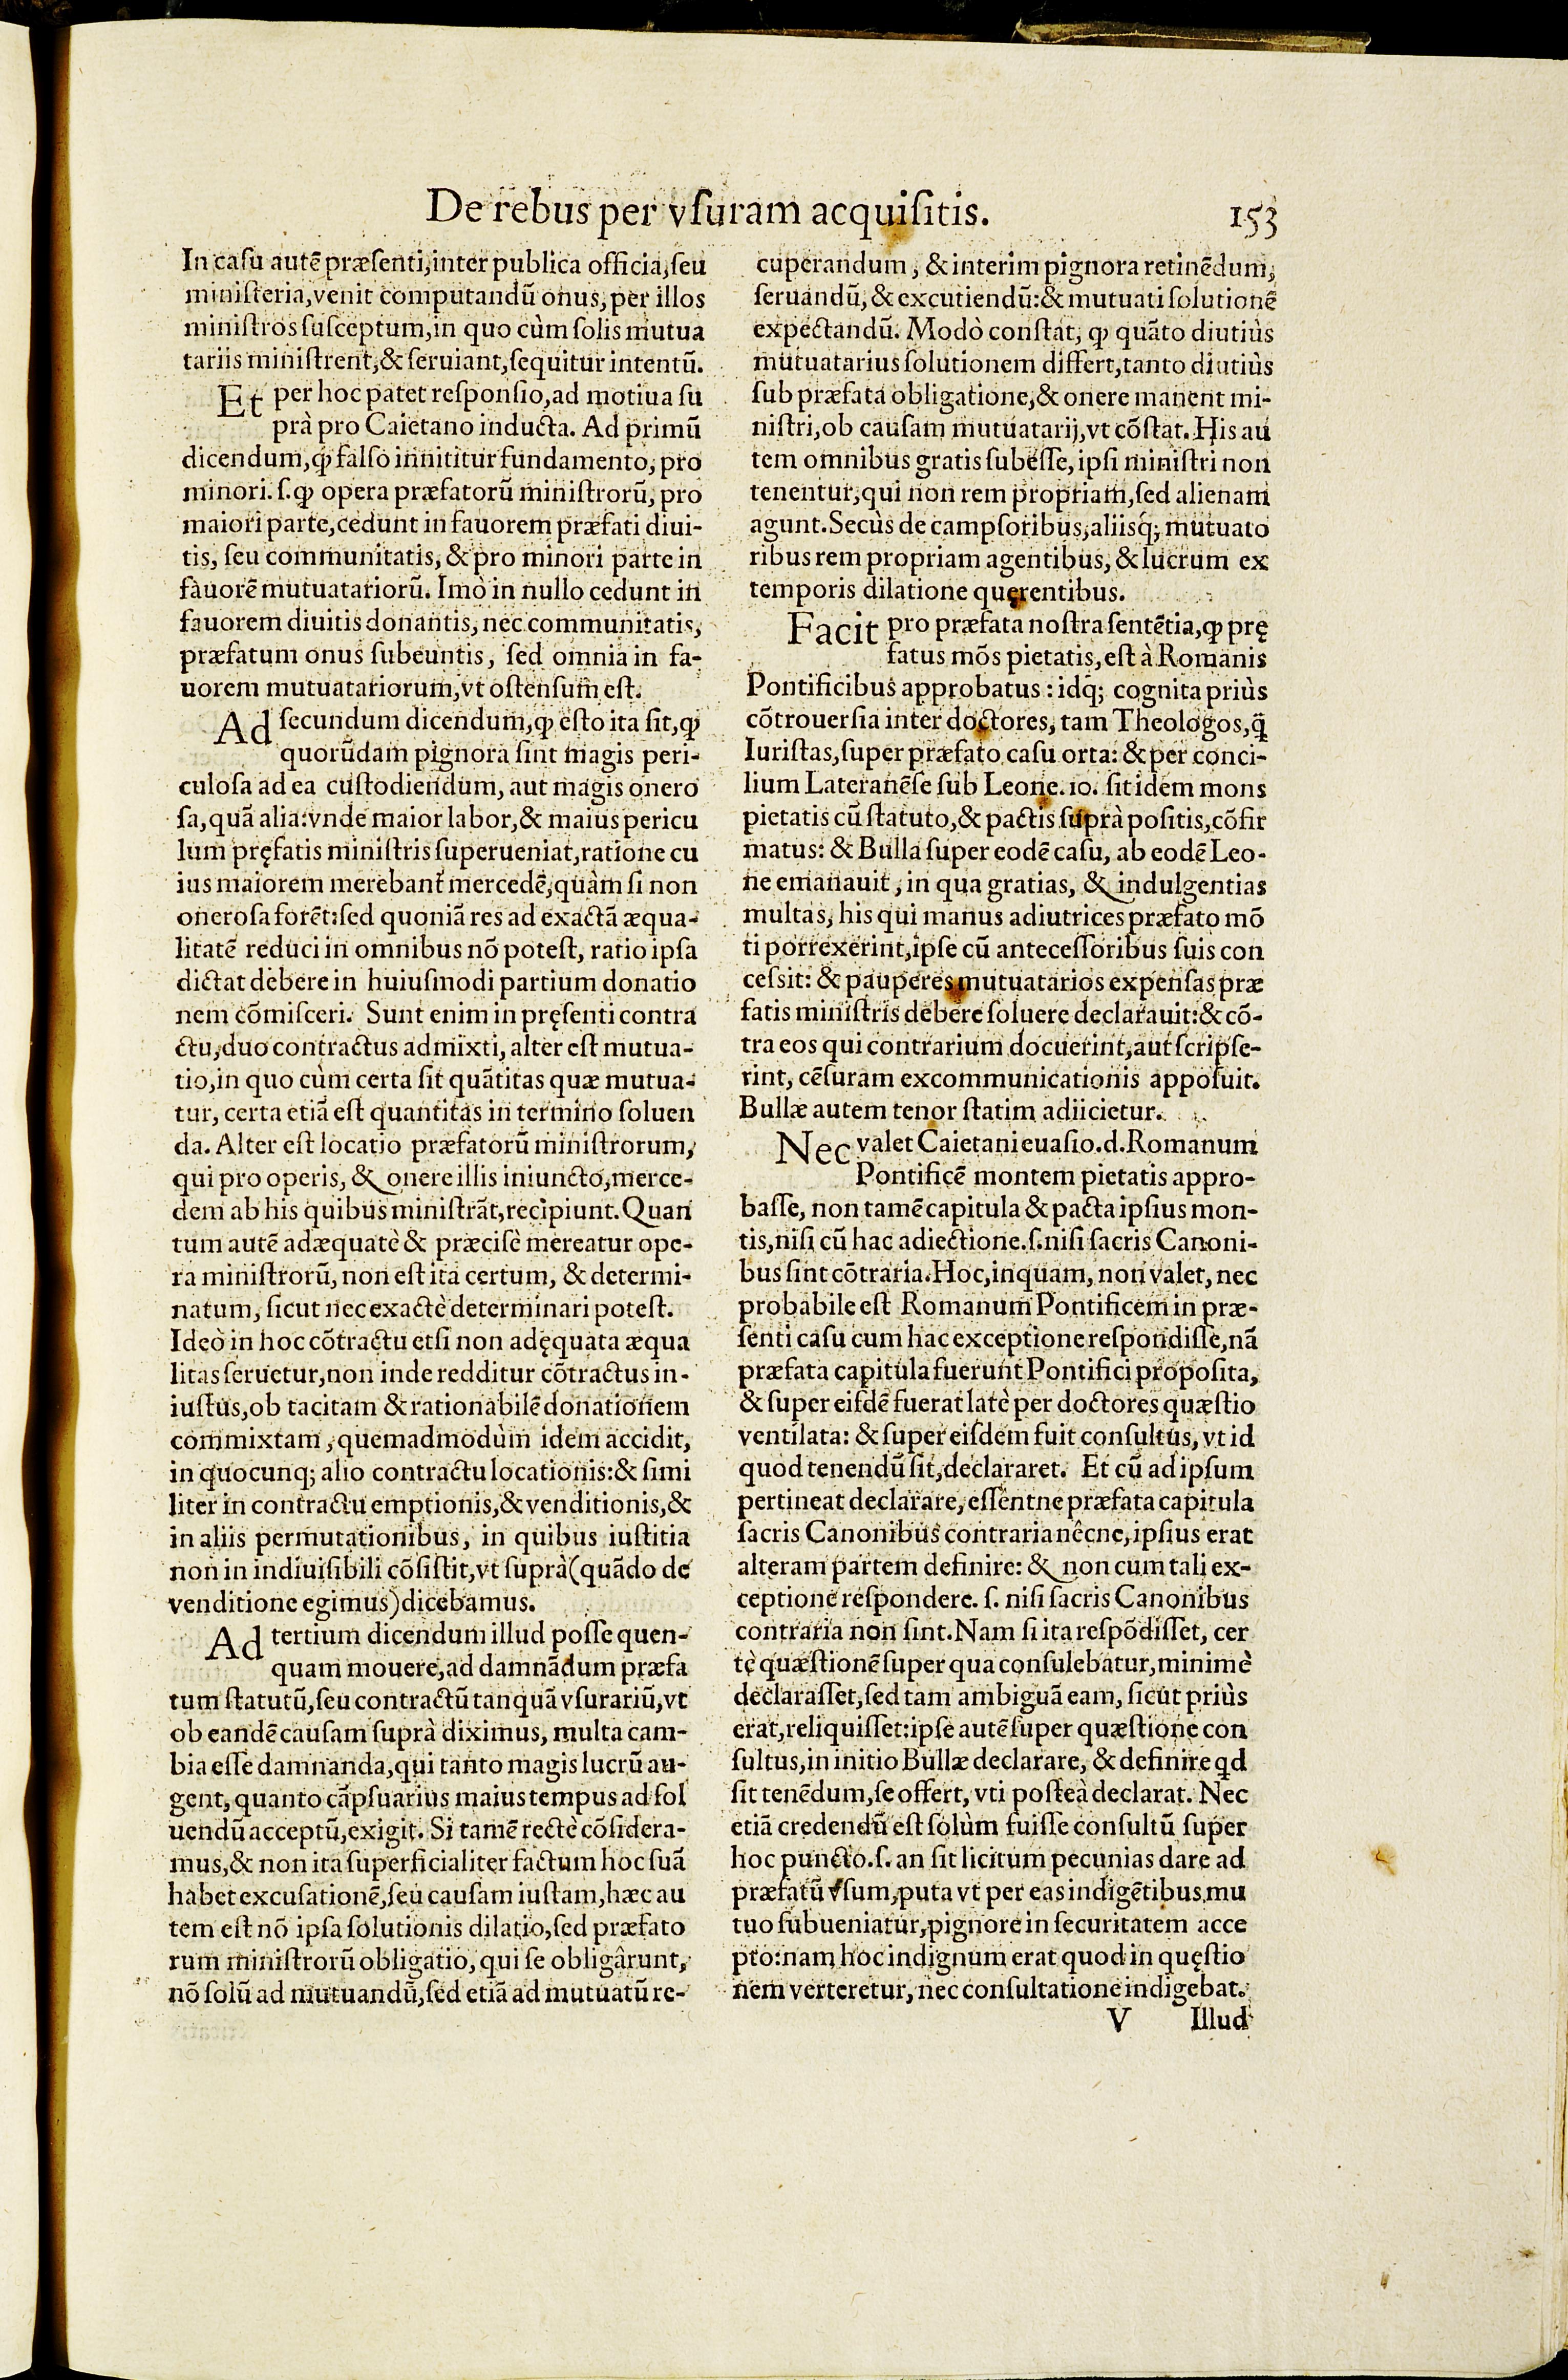 De rebus per vſuram acquiſitis. 153
In caſu autē præſenti, inter publica officia, ſeu
miniſteria, venit computandū onus, per illos
miniſtros ſuſceptum, in quo cùm ſolis mutua
tariis miniſtrent, & ſeruiant, ſequitur intentū.
Et per hoc patet reſponſio, ad motiua ſu
prà pro Caietano inducta. Ad primū
dicendum, ꝙ falſo innititur fundamento, pro
minori. ſ. ꝙ opera præfatorū miniſtrorū, pro
maiori parte, cedunt in fauorem præfati diui-
tis, ſeu communitatis, & pro minori parte in
fauorē mutuatariorū. Imò in nullo cedunt in
fauorem diuitis donantis, nec communitatis,
præfatum onus ſubeuntis, ſed omnia in fa-
uorem mutuatariorum, vt oſtenſum eſt.
Ad ſecundum dicendum, ꝙ eſto ita ſit, ꝙ
quorūdam pignora ſint magis peri-
culoſa ad ea cuſtodiendum, aut magis onero
ſa, quā alia: vnde maior labor, & maius pericu
lum pręfatis miniſtris ſuperueniat, ratione cu
ius maiorem merebant̄ mercedē, quàm ſi non
oneroſa forēt: ſed quoniā res ad exactā æqua-
litatē reduci in omnibus nō poteſt, ratio ipſa
dictat debere in huiuſmodi partium donatio
nem cōmiſceri. Sunt enim in pręſenti contra
ctu, duo contractus admixti, alter eſt mutua-
tio, in quo cùm certa ſit quātitas quæ mutua-
tur, certa etiā eſt quantitas in termino ſoluen
da. Alter eſt locatio præfatorū miniſtrorum,
qui pro operis, & onere illis iniuncto, merce-
dem ab his quibus miniſtrāt, recipiunt. Quan
tum autē adæquatè & præciſè mereatur ope-
ra miniſtrorū, non eſt ita certum, & determi-
natum, ſicut nec exactè determinari poteſt.
Ideò in hoc cōtractu etſi non adęquata æqua
litas ſeruetur, non inde redditur cōtractus in-
iuſtus, ob tacitam & rationabilē donationem
commixtam, quemadmodùm idem accidit,
in quocunq; alio contractu locationis: & ſimi
liter in contractu emptionis, & venditionis, &
in aliis permutationibus, in quibus iuſtitia
non in indiuiſibili cōſiſtit, vt ſuprà (quādo de
venditione egimus) dicebamus.
Ad tertium dicendum illud poſſe quen-
quam mouere, ad damnādum præfa
tum ſtatutū, ſeu contractū tanquā vſurariū, vt
ob eandē cauſam ſuprà diximus, multa cam-
bia eſſe damnanda, qui tanto magis lucrū au-
gent, quanto cāpſuarius maius tempus ad ſol
uendū acceptū, exigit. Si tamē rectè cōſidera-
mus, & non ita ſuperficialiter factum hoc ſuā
habet excuſationē, ſeu cauſam iuſtam, hæc au
tem eſt nō ipſa ſolutionis dilatio, ſed præfato
rum miniſtrorū obligatio, qui ſe obligârunt,
nō ſolū ad mutuandū, ſed etiā ad mutuatū re-
cuperandum, & interim pignora retinēdum,
ſeruandū, & excutiendū: & mutuati ſolutionē
expectandū. Modò conſtat, ꝙ quāto diutiùs
mutuatarius ſolutionem differt, tanto diutiùs
ſub præfata obligatione, & onere manent mi-
niſtri, ob cauſam mutuatarij, vt cōſtat. His au
tem omnibus gratis ſubeſſe, ipſi miniſtri non
tenentur, qui non rem propriam, ſed alienam
agunt. Secùs de campſoribus, aliisq́; mutuato
ribus rem propriam agentibus, & lucrum ex
temporis dilatione quęrentibus.
Facit pro præfata noſtra ſentētia, ꝙ prę
fatus mōs pietatis, eſt à Romanis
Pontificibus approbatus: idq́; cognita priùs
cōtrouerſia inter doctores, tam Theologos, q̄
Iuriſtas, ſuper præfato caſu orta: & per conci-
lium Lateranēſe ſub Leone. 10. ſit idem mons
pietatis cū ſtatuto, & pactis ſuprà poſitis, cōfir
matus: & Bulla ſuper eodē caſu, ab eodē Leo-
ne emanauit, in qua gratias, & indulgentias
multas, his qui manus adiutrices præfato mō
ti porrexerint, ipſe cū anteceſſoribus ſuis con
ceſsit: & pauperes mutuatarios expenſas præ
fatis miniſtris debere ſoluere declarauit: & cō-
tra eos qui contrarium docuerint, aut ſcripſe-
rint, cēſuram excommunicationis appoſuit.
Bullæ autem tenor ſtatim adiicietur.
Nec valet Caietani euaſio. d. Romanum
Pontificē montem pietatis appro-
baſſe, non tamē capitula & pacta ipſius mon-
tis, niſi cū hac adiectione. ſ. niſi ſacris Canoni-
bus ſint cōtraria. Hoc, inquam, non valet, nec
probabile eſt Romanum Pontificem in præ-
ſenti caſu cum hac exceptione reſpondiſſe, nā
præfata capitula fuerunt Pontifici propoſita,
& ſuper eiſdē fuerat latè per doctores quæſtio
ventilata: & ſuper eiſdem fuit conſultus, vt id
quod tenendū ſit, declararet. Et cū ad ipſum
pertineat declarare, eſſentne præfata capitula
ſacris Canonibus contraria nêcne, ipſius erat
alteram partem definire: & non cum tali ex-
ceptione reſpondere. ſ. niſi ſacris Canonibus
contraria non ſint. Nam ſi ita reſpōdiſſet, cer
tè quæſtionē ſuper qua conſulebatur, minimè
declaraſſet, ſed tam ambiguā eam, ſicut priùs
erat, reliquiſſet: ipſe autē ſuper quæſtione con
ſultus, in initio Bullæ declarare, & definire qd
ſit tenēdum, ſe offert, vti poſteà declarat. Nec
etiā credendū eſt ſolùm fuiſſe conſultū ſuper
hoc puncto. ſ. an ſit licitum pecunias dare ad
præfatū vſum, puta vt per eas indigētibus mu
tuo ſubueniatur, pignore in ſecuritatem acce
pto: nam hoc indignum erat quod in quęſtio
nem verteretur, nec conſultatione indigebat.
V Illud